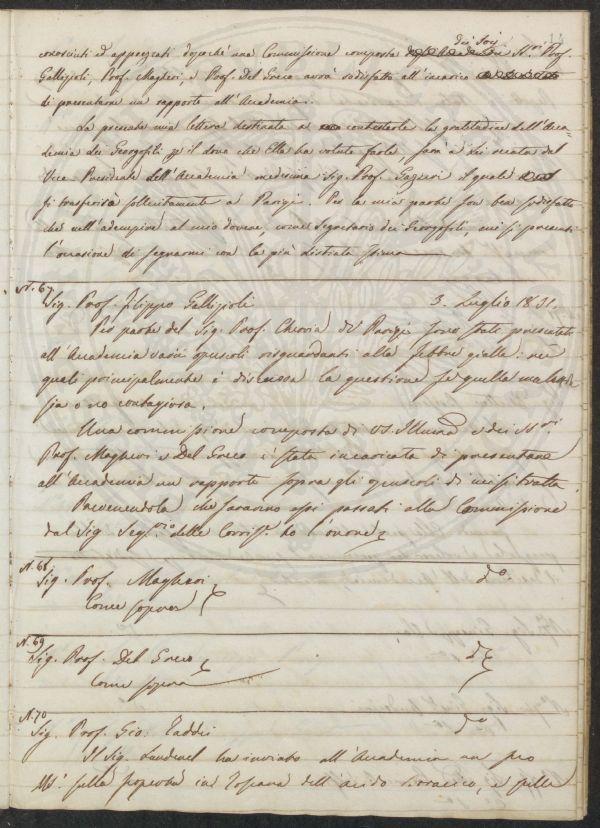 conosciuti ed apprezzati dopoché una Commissione composta dei Socj SS.ri Prof.
Gallizioli, Prof. Magheri, e Prof. Del Greco avrà sodisfatto all'incarico
di presentare un rapporto all'Accademia.
La presente mia lettera destinata a contestarle la gratitudine dell'Acca-
demia dei Georgofili pel dono che Ella ha voluto farle, sarà a Lei recata dal
Vice Presidente dell'Accademia medesima Sig. Prof. Gazzeri il quale
si trasferirà sollecitamente a Parigi. Per la mia parte son ben sodisfatto
che nell'adempire al mio dovere, come Segretario dei Georgofili, mi si presenti
l'occasione di segnarmi con la più distinta stima
N. 67
Sig. Prof. Filippo Gallizioli 3. Luglio 1831.
Per parte del Sig. Prof. Chervin di Parigi sono stati presentati
all'Accademia varii opuscoli risguardanti alla febbre gialla: nei
quali principalmente è discussa la questione se quella malat-
tia o no contagiosa.
Una commissione composta di VS. Illma e dei SS.ri
Prof. Magheri e Del Greco è stata incaricata di presentare
all'Accademia un rapporto sopra gli opuscoli di cui si tratta.
Prevenendola che saranno essi passati alla Commissione
dal Sig. Seg.rio delle Corrisp. ho l'onore
N. 68
Sig. Prof. Magheri d.o
Come sopra
N. 69
Sig. Prof. Del Greco d.
Come sopra
N. 70
Sig. Prof. Gio. Taddei d.o
Il Sig. ha inviato all'Accademia un suo
MS. sulla in Toscana dell'acido e sulle